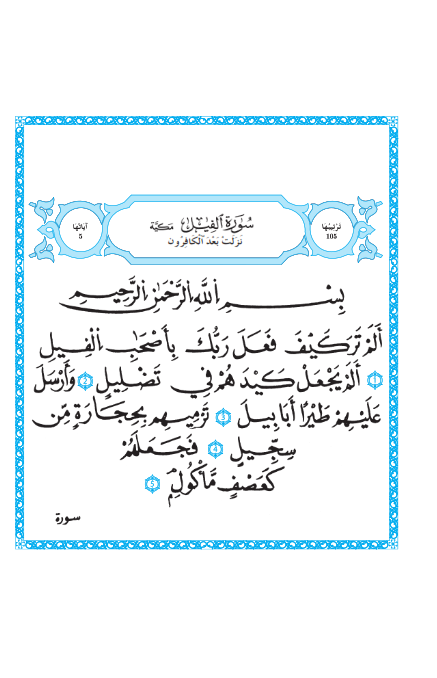 ترتيبها
105
سُورَةُ الفِيلِ مَكيَّة
نَزَلَتْ بَعْدَ الكَافِرُون
آياتها
5
بِسْمِ اللَّهِ الرَّحْمَٰنِ الرَّحِيمِ
أَلَمْ تَرَ كَيْفَ فَعَلَ رَبُّكَ بِأَصْحَٰبِ الْفِيلِ
1 أَلَمْ يَجْعَلْ كَيْدَهُمْ فِي تَضْلِيلٍ 2 وَأَرْسَلَ
عَلَيْهِمْ طَيْرًا أَبَابِيلَ 3 تَرْمِيهِم بِحِجَارَةٍ مِّن
سِجِّيلٍ 4 فَجَعَلَهُمْ
كَعَصْفٍ مَّأْكُولٍ 5
سورة